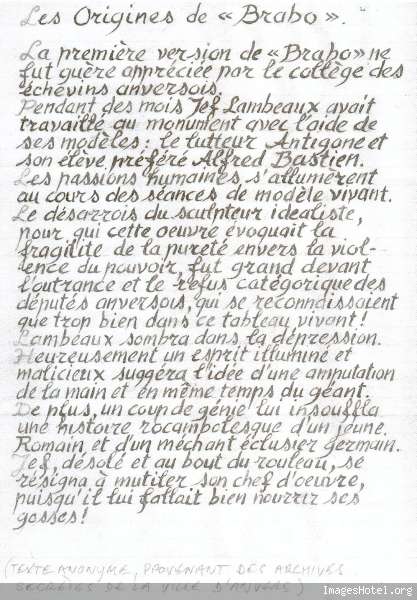 Les Origines de « Brabo ».
La première version de « Brabo » ne
fut guère appréciée par le collège des
échevins anversois.
Pendant des mois Jef Lambeaux avait
travaillé au monument avec l'aide de
ses modèles : le lutteur Antigone et
son élève préféré Alfred Bastien.
Les passions humaines s'allumèrent
au cours des séances de modèle vivant.
Le désarrois du sculpteur idealiste,
pour qui cette oeuvre évoquait la
fragilité de la pureté envers la viol-
ence du pouvoir, fut grand devant
l'outrance et le refus catégorique des
députés anversois, qui se reconnaissaient
que trop bien dans ce tableau vivant !
Lambeaux sombra dans la dépression.
Heureusement un esprit illuminé et
malicieux suggéra l'idée d'une amputation
de la main et en même temps du géant.
De plus, un coup de génie lui insouffla
une histoire rocambolesque d'un jeune
Romain et d'un méchant éclusier germain.
Jef, désolé et au bout du rouleau, se
résigna à mutiler son chef d'oeuvre,
puisqu'il lui fallait bien nourrir ses
gosses !
(TEXTE ANONYME, PROVENANT DES ARCHIVES
SECRÈTES DE LA VILLE D'ANVERS)
ImagesHotel.org